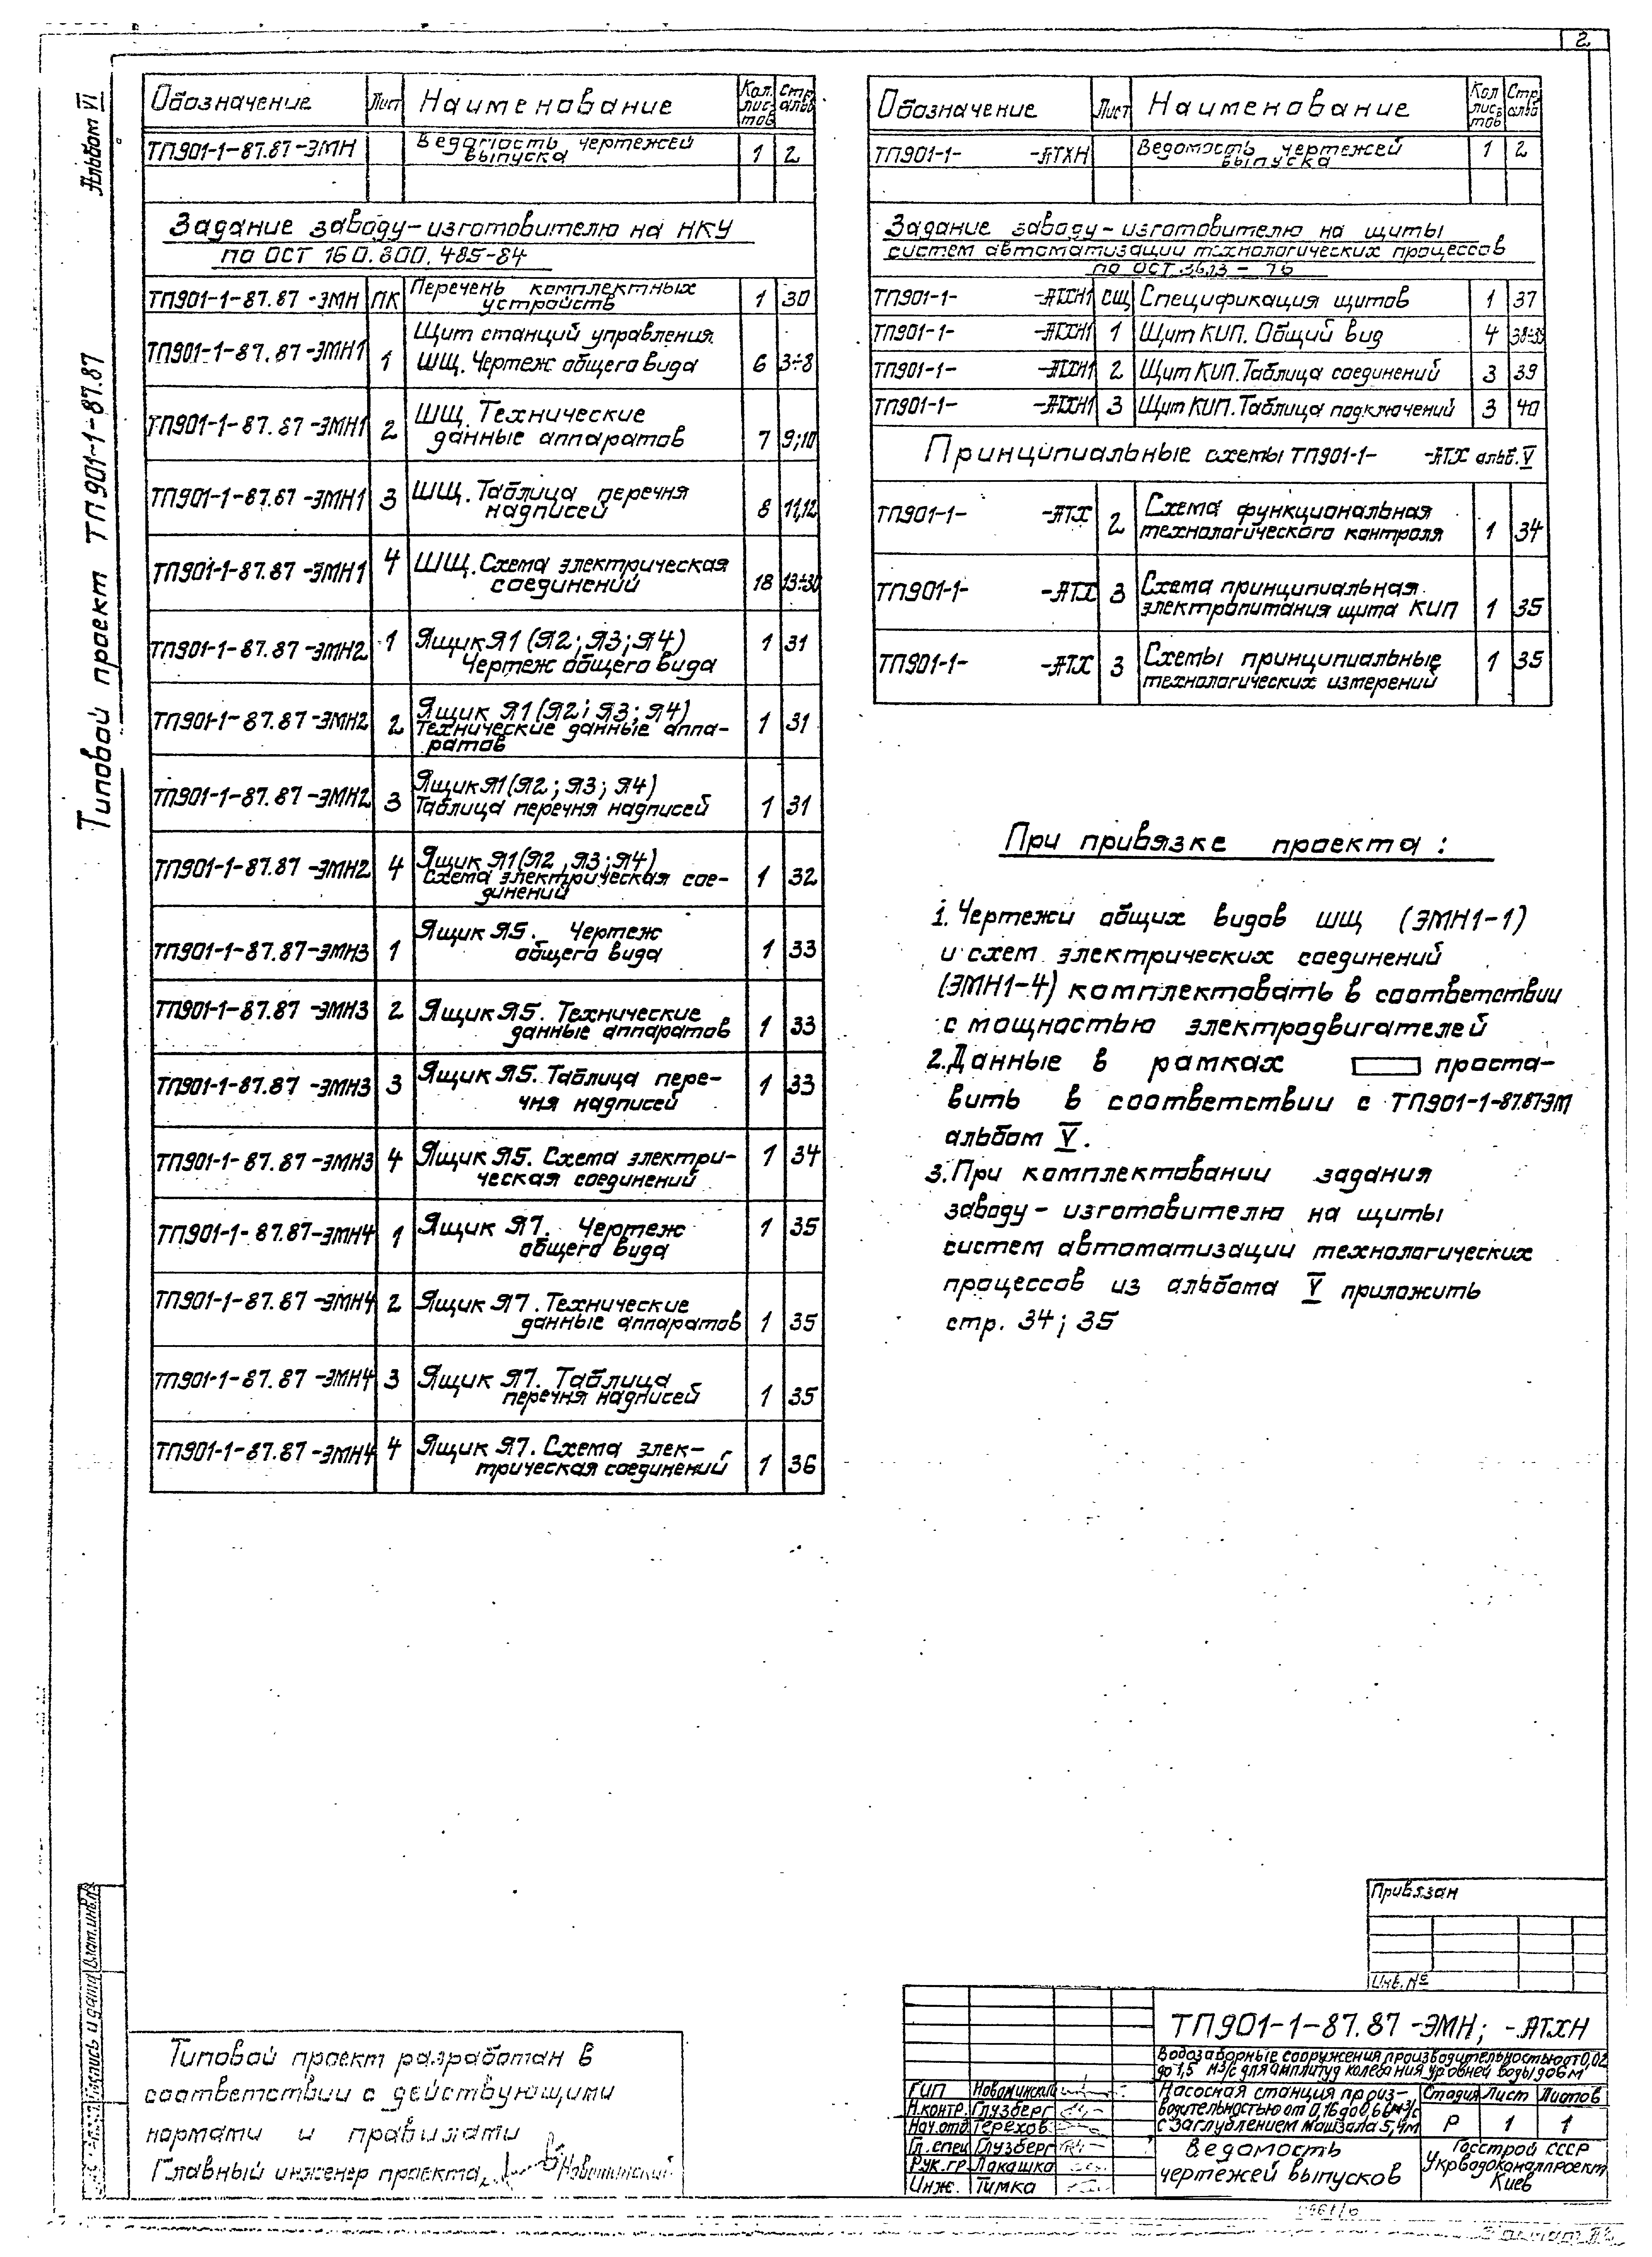 2
Альбом VI
Типовой проект ТП901-1-87.87
Обозначение Лист Наименование Кол. лис- тов Стр. альб
ТП901-1-87.87-ЭМН Ведомость чертежей выпуска 1 2
Задание заводу-изготовителю на НКУ
по ОСТ 160.800.485-84
ТП901-1-87.87-ЭМН ПК Перечень комплектных устройств 1 30
ТП901-1-87.87-ЭМН1 1 Щит станций управления ШЩ. Чертеж общего вида 6 3÷8
ТП901-1-87.87-ЭМН1 2 ШЩ. Технические данные аппаратов 7 9;10
ТП901-1-87.87-ЭМН1 3 ШЩ. Таблица перечня надписей 8 11,12
ТП901-1-87.87-ЭМН1 4 ШЩ. Схема электрическая соединений 18 13÷30
ТП901-1-87.87-ЭМН2 1 Ящик Я1 (Я2; Я3; Я4) Чертеж общего вида 1 31
ТП901-1-87.87-ЭМН2 2 Ящик Я1 (Я2; Я3; Я4) Технические данные аппа- ратов 1 31
ТП901-1-87.87-ЭМН2 3 Ящик Я1 (Я2; Я3; Я4) Таблица перечня надписей 1 31
ТП901-1-87.87-ЭМН2 4 Ящик Я1 (Я2, Я3; Я4) Схема электрическая сое- динений 1 32
ТП901-1-87.87-ЭМН3 1 Ящик Я5. Чертеж общего вида 1 33
ТП901-1-87.87-ЭМН3 2 Ящик Я5. Технические данные аппаратов 1 33
ТП901-1-87.87-ЭМН3 3 Ящик Я5. Таблица пере- чня надписей 1 33
ТП901-1-87.87-ЭМН3 4 Ящик Я5. Схема электри- ческая соединений 1 34
ТП901-1-87.87-ЭМН4 1 Ящик Я7. Чертеж общего вида 1 35
ТП901-1-87.87-ЭМН4 2 Ящик Я7. Технические данные аппаратов 1 35
ТП901-1-87.87-ЭМН4 3 Ящик Я7. Таблица перечня надписей 1 35
ТП901-1-87.87-ЭМН4 4 Ящик Я7. Схема элек- трическая соединений 1 36
Обозначение Лист Наименование Кол лис- тов Стр. альб
ТП901-1- -АТХН Ведомость чертежей выпуска 1 2
Задание заводу-изготовителю на щиты
систем автоматизации технологических процессов
по ОСТ 36.13-76
ТП901-1- -АТХН1 СЩ Спецификация щитов 1 37
ТП901-1- -АТХН1 1 Щит КИП. Общий вид 4 38÷39
ТП901-1- -АТХН1 2 Щит КИП. Таблица соединений 3 39
ТП901-1- -АТХН1 3 Щит КИП. Таблица подключений 3 40
Принципиальные схемы ТП901-1- -АТХ альб. V
ТП901-1- -АТХ 2 Схема функциональная технологического контроля 1 34
ТП901-1- -АТХ 3 Схема принципиальная электропитания щита КИП 1 35
ТП901-1- -АТХ 3 Схемы принципиальные технологических измерений 1 35
При привязке проекта:
1. Чертежи общих видов ШЩ (ЭМН1-1)
и схем электрических соединений
(ЭМН1-4) комплектовать в соответствии
с мощностью электродвигателей
2. Данные в рамках проста-
вить в соответствии с ТП901-1-87.87-ЭМ
альбом V.
3. При комплектовании задания
заводу-изготовителю на щиты
систем автоматизации технологических
процессов из альбома V приложить
стр. 34; 35
Привязан
Инв. №
Взам.инв.№
Подпись и дата
Типовой проект разработан в
соответствии с действующими
нормами и правилами
Главный инженер проекта Новоминский
ТП901-1-87.87-ЭМН; -АТХН
Водозаборные сооружения производительностью от 0,02
до 1,5 м3/с для амплитуд колебания уровней воды до 6м
ГИП Новоминский
Н.контр. Глузберг
Нач.отд Терехов
Гл.спец Глузберг
Рук.гр Лакашка
Инж. Тимка
Насосная станция произ-
водительностью от 0,16 до 0,6 м3/с
с заглублением машзала 5,4м
Стадия Лист Листов
Р 1 1
Ведомость
чертежей выпусков
Госстрой СССР
Укрводоканалпроект
Киев